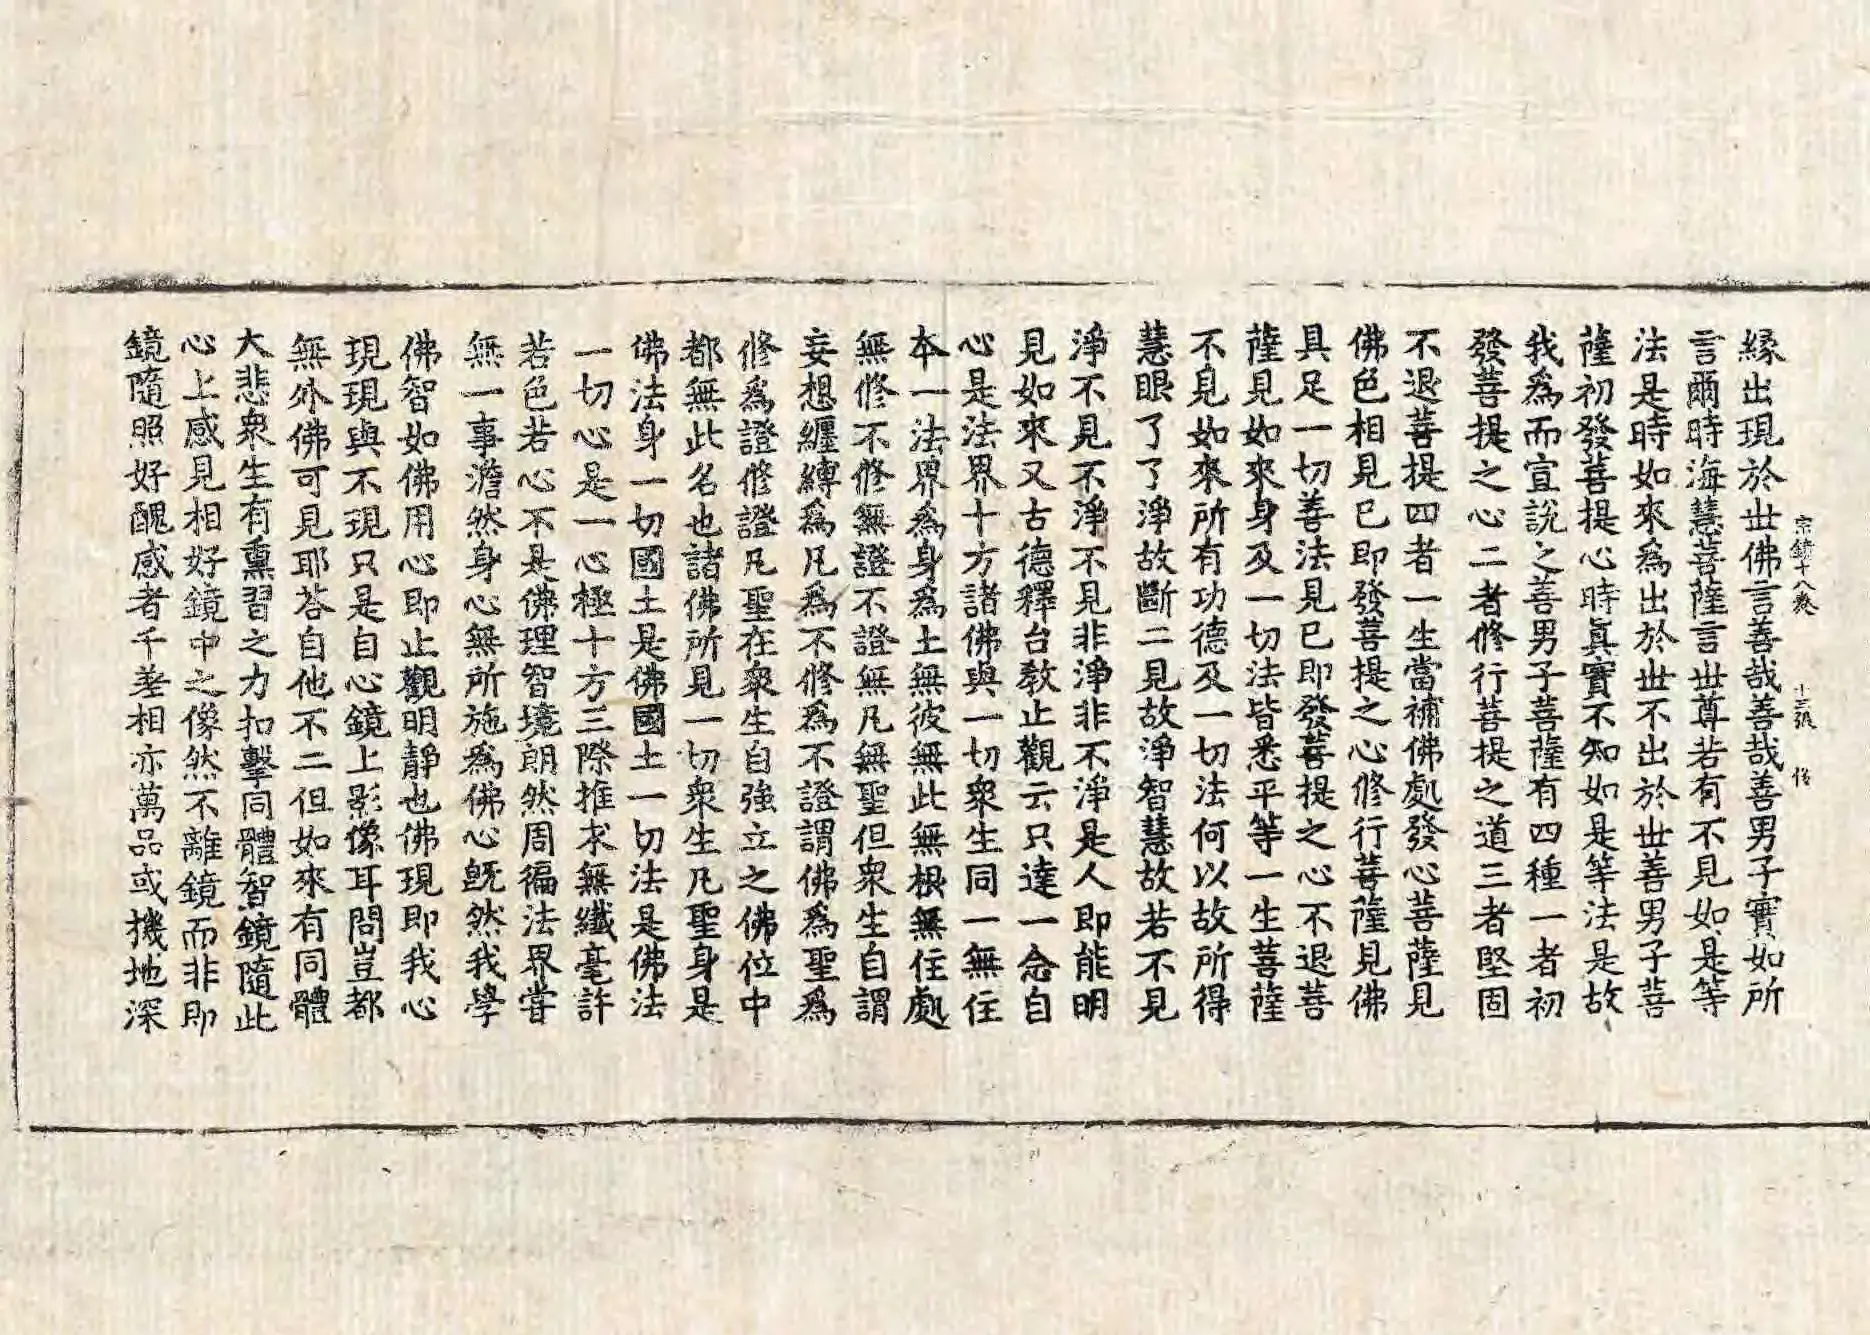 宗鏡十八卷 十三張 俗
緣出現於世佛言善哉善哉善男子實如所
言爾時海慧菩薩言世尊若有不見如是等
法是時如來爲出於世不出於世善男子菩
薩初發菩提心時眞實不知如是等法是故
我爲而宣說之善男子菩薩有四種一者初
發菩提之心二者修行菩提之道三者堅固
不退菩提四者一生當補佛處發心菩薩見
佛色相見已即發菩提之心修行菩薩見佛
具足一切善法見已即發菩提之心不退菩
薩見如來身及一切法皆悉平等一生菩薩
不見如來所有功德及一切法何以故所得
慧眼了了淨故斷二見故淨智慧故若不見
淨不見不淨不見非淨非不淨是人即能明
見如來又古德釋台教止觀云只達一念自
心是法界十方諸佛與一切衆生同一無住
本一法界爲身爲土無彼無此無根無住處
無修不修無證不證無凡無聖但衆生自謂
妄想纏縛爲凡爲不修爲不證謂佛爲聖爲
修爲證修證凡聖在衆生自強立之佛位中
都無此名也諸佛所見一切衆生凡聖身是
佛法身一切國土是佛國土一切法是佛法
一切心是一心極十方三際推求無纖毫許
若色若心不是佛理智境朗然周徧法界甞
無一事澹然身心無所施爲佛心旣然我學
佛智如佛用心即止觀明靜也佛現即我心
現現與不現只是自心鏡上影像耳問豈都
無外佛可見耶荅自他不二但如來有同體
大悲衆生有熏習之力扣擊同體智鏡隨此
心上感見相好鏡中之像然不離鏡而非即
鏡隨照好醜感者千差相亦萬品或機地深